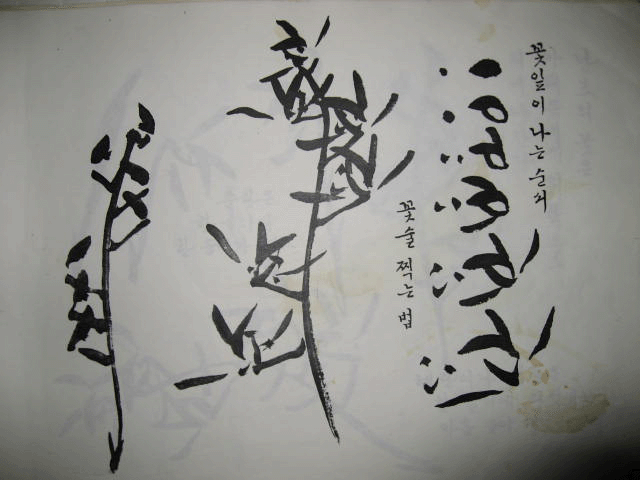 꽃잎이 나는 순서
꽃술 찍는 법